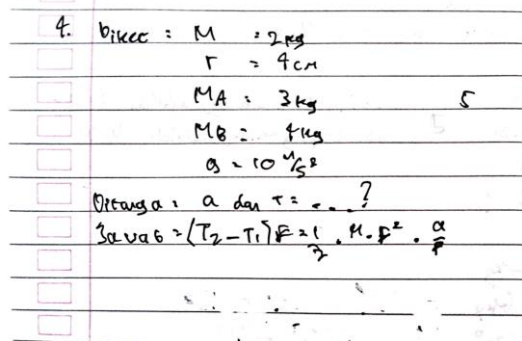 4. Diket : M = 2 kg
r = 4 cm
MA = 3 kg 5
MB = 4 kg
g = 10 m/s²
Ditanya : a dan T = ...?
Jawab = (T₂ - T₁) r = 1/2 . M . r² . a/r